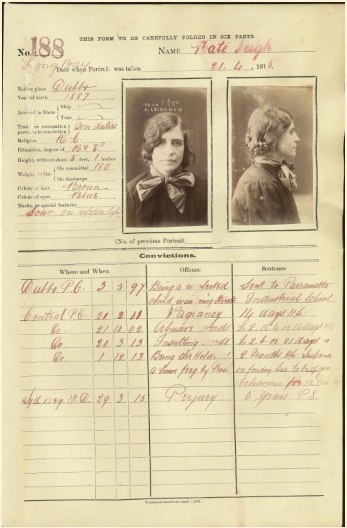 THIS FORM TO BE CAREFULLY FOLDED IN SIX PARTS.
No. 188
NAME Kate Leigh
Long Bay
Date when Portrait was taken 21. 4. 1915.
Native place Dubbo
Year of birth 1887
Arrived in State { Ship
Year
Trade or occupation previous to conviction } Domestic
Religion R. C.
Education, degree of R & W
Height, without shoes 5 feet, 1 inches
Weight, in lbs. { On committal 110
On discharge
Colour of hair Brown
Colour of eyes Blue
Marks or special features
Scar on upper lip
(No. of previous Portrait
Convictions.
Where and When
Offence
Sentence
Dubbo P.C. 3 5 97 Being a neglected child, wandering Streets Sent to Parramatta Industrial School
Central P.C. Vagrancy 14 days HL
Do. Abusive words
Do. 20 3 13 Insulting words or 21 days
Do. 1 12 13 Being the Holder of a house freq. by Pros. 2 Months HL
behaviour for 12
Sydney Q.S. 29 3 15 Perjury 5 years P.S.